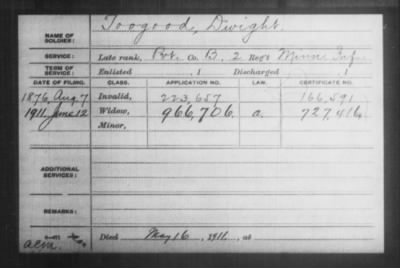 NAME OF SOLDIER: Toogood, Dwight.
SERVICE: Late rank, Pvt. Co. B, 2 Reg't Minn Inf.
TERM OF SERVICE: Enlisted , 1 Discharged , 1
DATE OF FILING. CLASS. APPLICATION NO. LAW. CERTIFICATE NO.
1876, Aug. 7 Invalid, 223,657 166,591
1911, June 12 Widow, 966,706. a. 727,416
Minor,
ADDITIONAL SERVICES:
REMARKS:
Died May 16, 1911, at
acm.